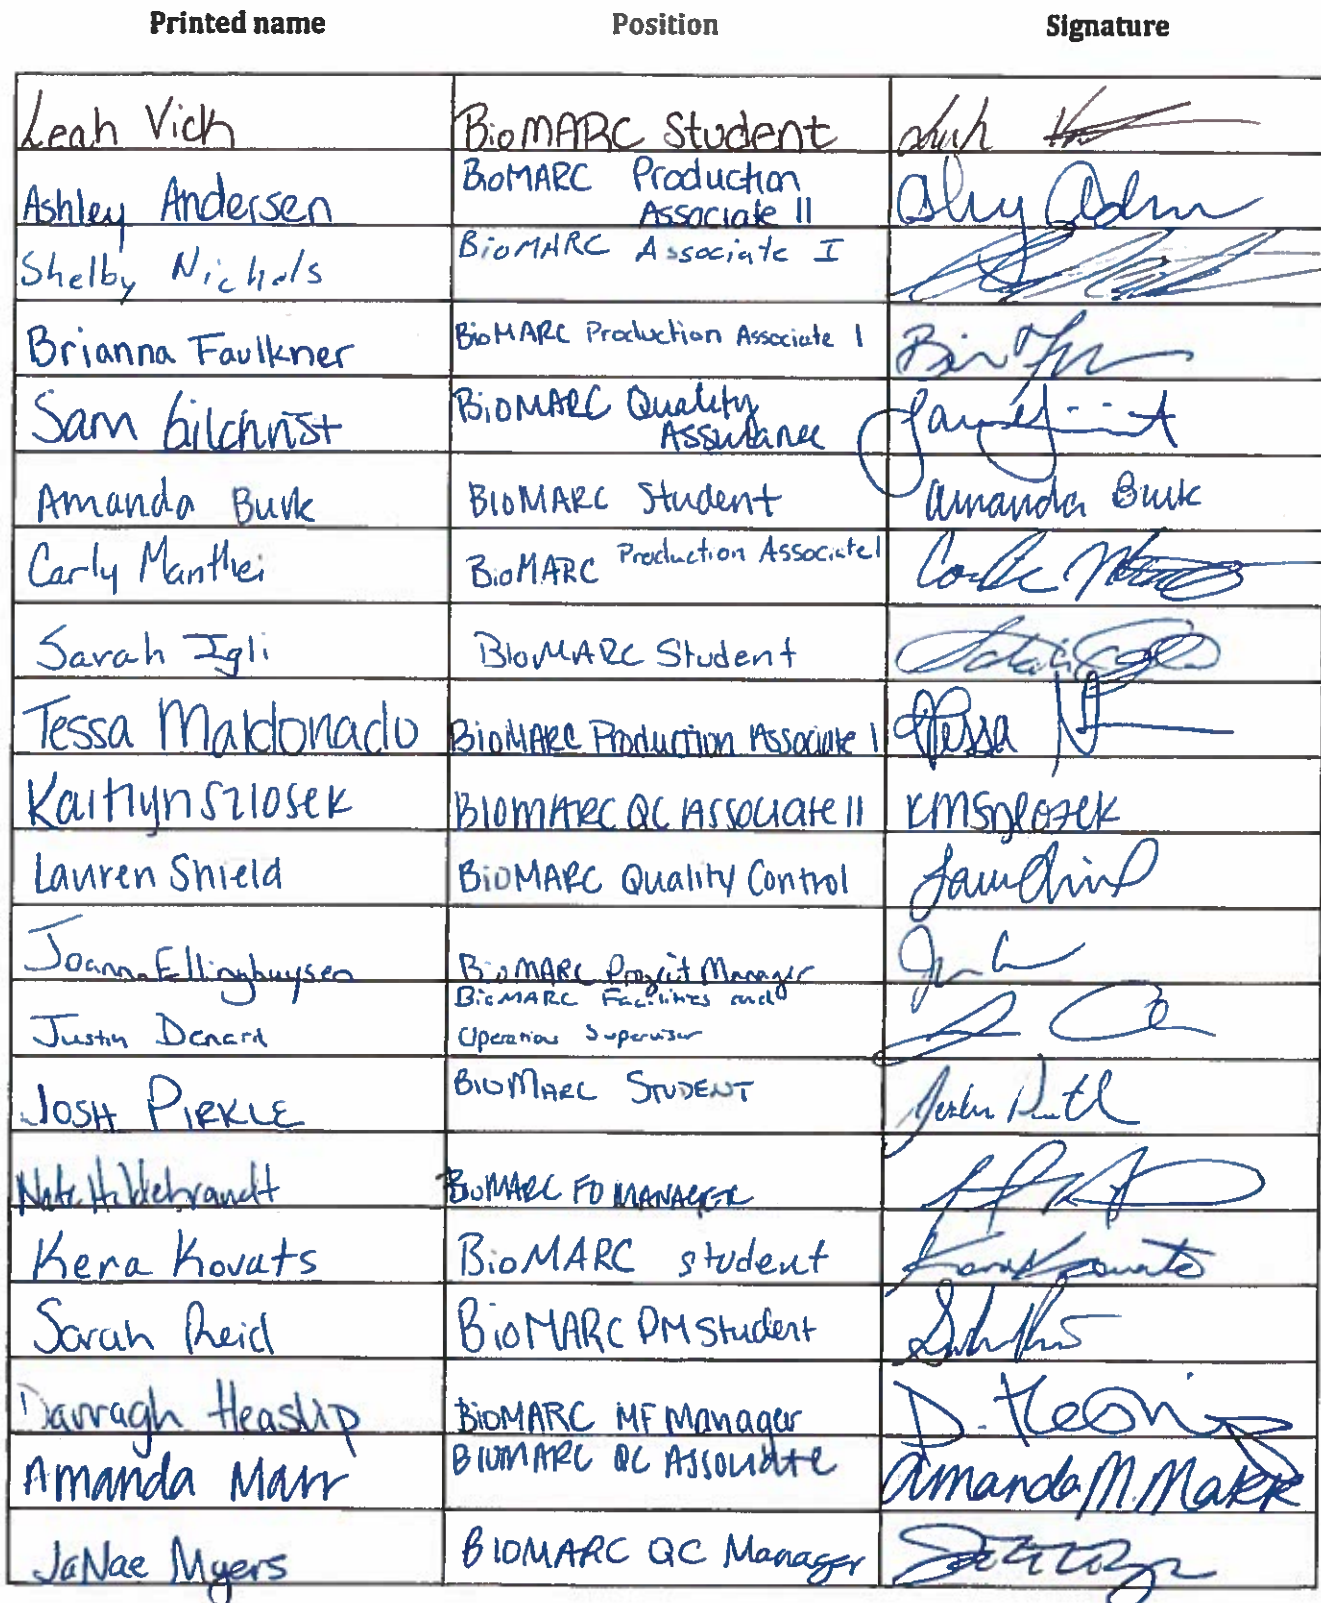 Printed name Position Signature
Leah Vick BioMARC Student
Ashley Andersen BioMARC Production Associate II
Shelby Nichols BioMARC Associate I
Brianna Faulkner BioMARC Production Associate I
Sam Gilchrist BioMARC Quality Assurance
Amanda Burk BioMARC Student Amanda Burk
Carly Manthei BioMARC Production Associate I
Sarah Igli BioMARC Student
Tessa Maldonado BioMARC Production Associate I Tessa
Kaitlyn Szlosek BIOMARC QC Associate II KMSzlosek
Lauren Shield BioMARC Quality Control
Joanna Ellinghuysen BioMARC Project Manager
Justin Denard BioMARC Facilities and
Operations Supervisor
Josh Pirkle BioMARC Student
Nate Hildebrandt BioMARC FD Manager
Kera Kovats BioMARC student
Sarah Reid BioMARC PM Student
Darragh Heaslip BioMARC MF Manager
Amanda Marr BIOMARC QC Associate Amanda M. Marr
JaNae Myers BIOMARC QC Manager